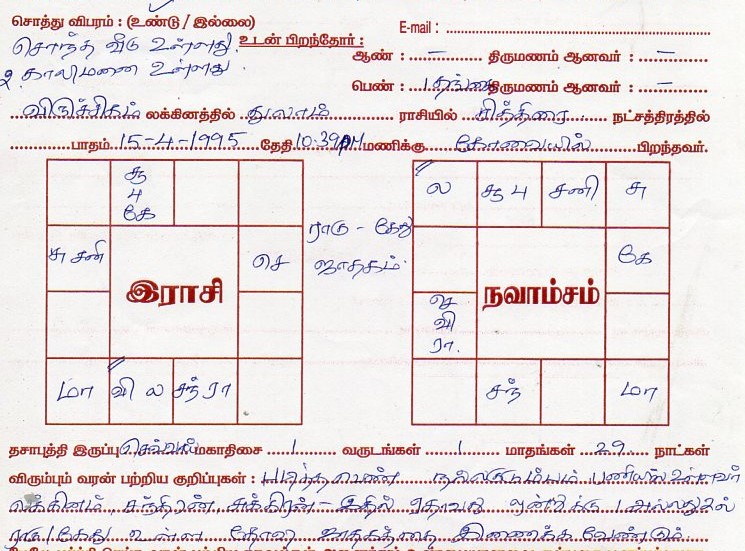 சொத்து விபரம் : (உண்டு / இல்லை)
E-mail :
சொந்த வீடு உள்ளது.
உடன் பிறந்தோர் :
ஆண் : – திருமணம் ஆனவர் : –
2 காலிமனை உள்ளது.
பெண் : 1 தங்கை திருமணம் ஆனவர் : –
விருச்சிகம் லக்கினத்தில் துலாம் ராசியில் சித்திரை நட்சத்திரத்தில்
பாதம் 15-4-1995 தேதி 10.39 PM மணிக்கு கோவையில் பிறந்தவர்.
சூ
4
கே
சு சனி
செ
இராசி
மா
வி ல
சந் ரா
ராகு - கேது
ஜாதகம்
ல
சூ 4
சனி
சு
கே
நவாம்சம்
செ
வி
ரா.
சந்
மா
தசாபுத்தி இருப்பு செவ்வாய் மகாதிசை 1 வருடங்கள் 1 மாதங்கள் 29 நாட்கள்
விரும்பும் வரன் பற்றிய குறிப்புகள் : படித்த பெண் நல்ல குடும்பம் பணியில் உள்ளவர்
லக்கினம், சந்திரன், சுக்கிரன் - இதில் ஏதாவது ஒன்றுக்கு 1 அல்லது 2ல்
ராகு / கேது உள்ள தோஷ ஜாதகத்தை இணைக்க வேண்டும்.